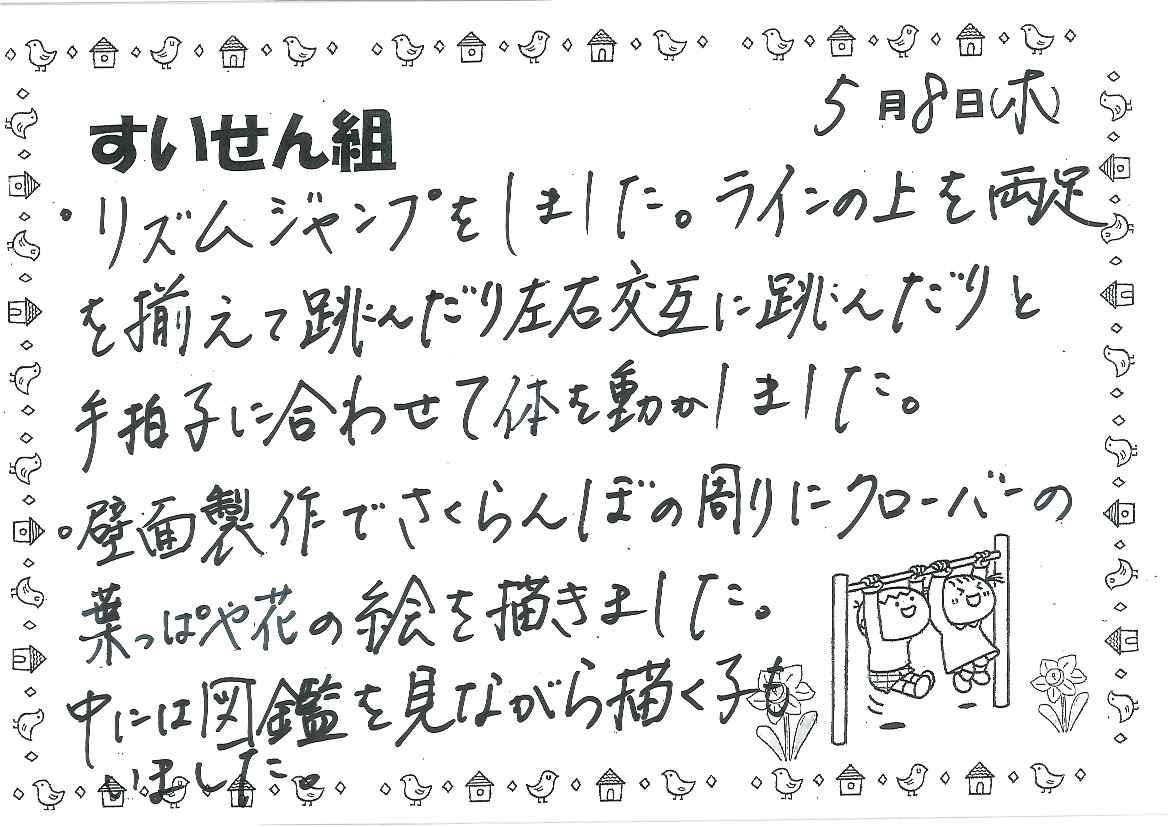 5月8日(木)
すいせん組
・リズムジャンプをしました。ラインの上を両足
を揃えて跳んだり左右交互に跳んだりと
手拍子に合わせて体を動かしました。
・壁面製作でさくらんぼの周りにクローバーの
葉っぱや花の絵を描きました。
中には図鑑を見ながら描く子も
いました。